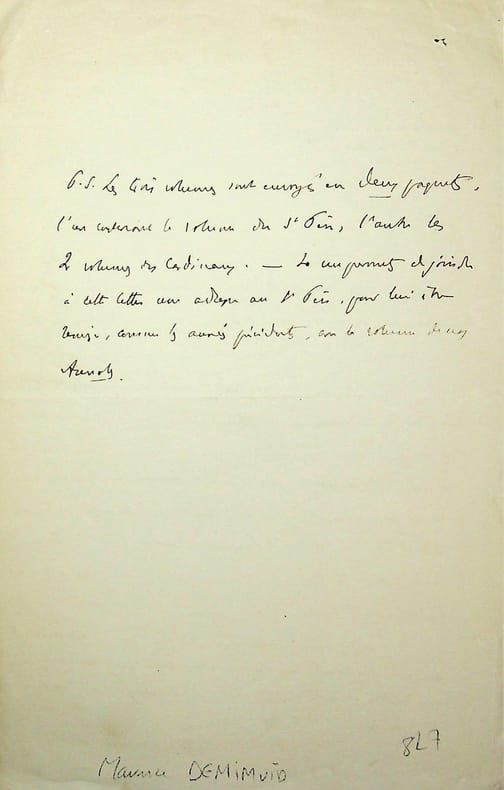 P.S. Les trois volumes sont envoyés en deux paquets,
l'un contenant le volume du St Père, l'autre les
2 volumes des Cardinaux. — Je me permets de joindre
à cette lettre une adresse au St Père, pour lui être
remise, comme les années précédentes, avec le volume de nos
Annales.
847
Maurice DEMIMUID